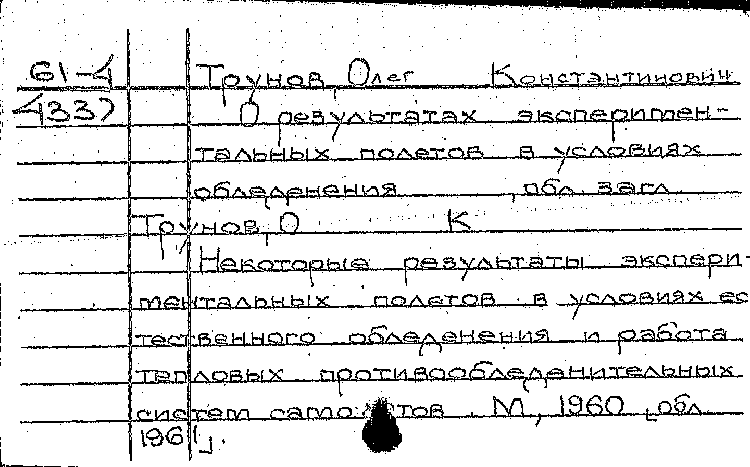 61-4 Трунов, Олег Константинович
4337 О результатах эксперимен-
тальных полетов в условиях
обледенения , обл. загл.
Трунов, О К
Некоторые результаты экспери-
ментальных полетов в условиях ес
тественного обледенения и работа
тепловых противообледенительных
систем самолетов. М, 1960 [обл.
1961].